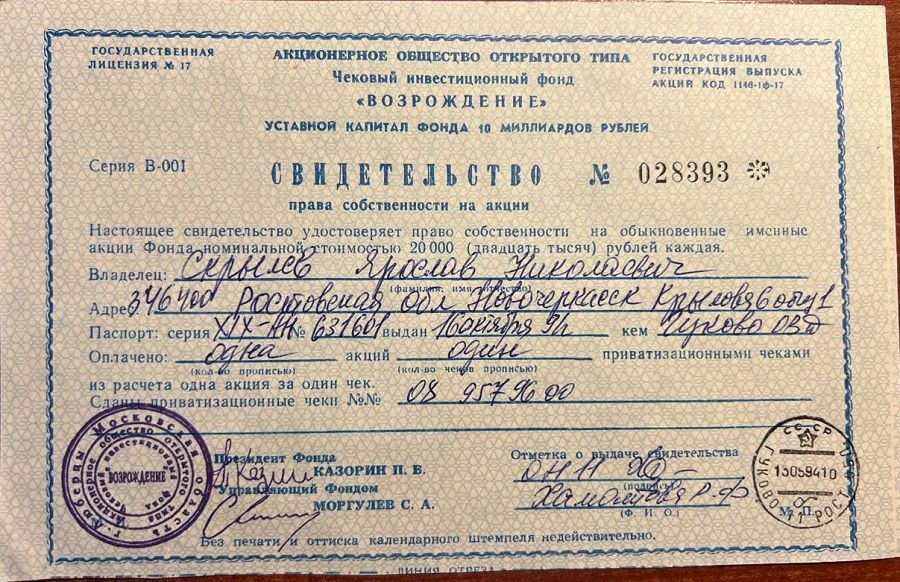 ГОСУДАРСТВЕННАЯ
ЛИЦЕНЗИЯ № 17
АКЦИОНЕРНОЕ ОБЩЕСТВО ОТКРЫТОГО ТИПА
Чековый инвестиционный фонд
«ВОЗРОЖДЕНИЕ»
УСТАВНОЙ КАПИТАЛ ФОНДА 10 МИЛЛИАРДОВ РУБЛЕЙ
ГОСУДАРСТВЕННАЯ
РЕГИСТРАЦИЯ ВЫПУСКА
АКЦИЙ КОД 1146-1ф-17
Серия В-001
СВИДЕТЕЛЬСТВО № 028393
права собственности на акции
Настоящее свидетельство удостоверяет право собственности на обыкновенные именные
акции Фонда номинальной стоимостью 20 000 (двадцать тысяч) рублей каждая.
Владелец: Скрылев Ярослав Николаевич
(фамилия, имя, отчество)
Адрес 346400 Ростовская обл Новочеркасск Крылова
Паспорт: серия XIX-АН № 631601 выдан 16 октября 91г кем Гуково ОВД
Оплачено: одна акций один приватизационными чеками
(кол-во прописью) (кол-во чеков прописью)
из расчета одна акция за один чек.
Сданы приватизационные чеки №№ 08 9579600
Президент Фонда
КАЗОРИН Н. В.
Управляющий Фондом
МОРГУЛЕВ С. А.
Отметка о выдаче свидетельства
ОН 11
(подпись)
Р. Ф
(Ф. И. О.)
М. П.
Без печати и оттиска календарного штемпеля недействительно.
ЛИНИЯ ОТРЕЗА
г. Люберцы Московская область
Акционерное общество открытого типа
Чековый инвестиционный фонд
ВОЗРОЖДЕНИЕ
СССР
ГУКОВО 11 РОСТ
15059410